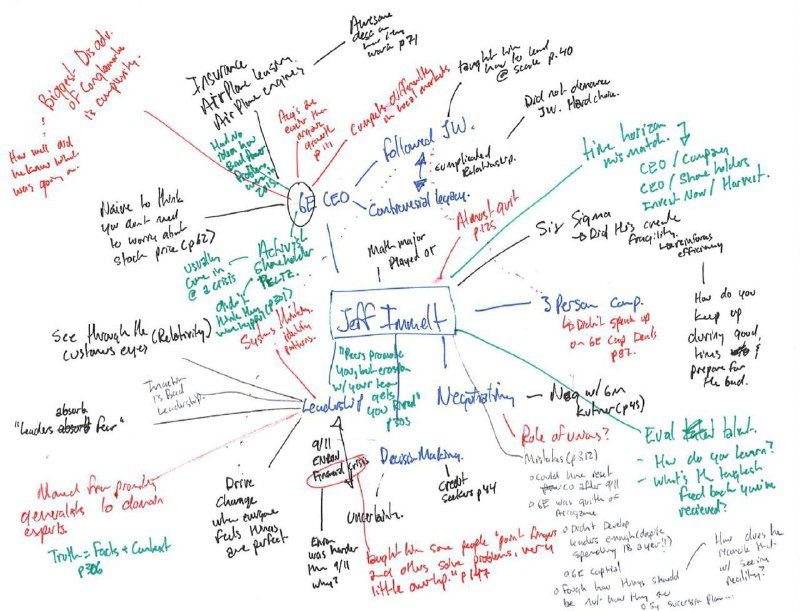 Biggest Disadv.
of Conglomerate
is complexity.
How well did
he know what
was going on.
Insurance
Airplane leasing
Airplane engines
Awesome
desc on
how they
work p71
Had no
idea how
Bad their
Problems
were in
2015
Acq's are
easier than
organic
growth
p 111
Compete differently
in local markets
taught him
how to lead
@ scale p.40
Followed J.W.
Did not denounce
JW. Hard choice.
complicated
relationship.
GE CEO
Controversial legacy.
Almost quit
p125
time horizon
mismatch.
CEO / Company
CEO / Shareholders
Invest Now / Harvest.
Six Sigma
→ Did this create
fragility.
efficiency
How do you
keep up
during good
times &
prepare for
the bad.
Naive to think
you don't need
to worry about
stock price (p62)
Activist
shareholder
Peltz.
usually
come in
@ a crisis
didn't
think they
(p301)
Math major
Played OT
Jeff Immelt
3 Person Comp.
↳ Didn't speak up
on GE Cap Deals
p82.
Systems thinking
identify
patterns.
See through the (Relativity)
customers eyes
Inaction
is Bad
Leadership.
absorb
"leaders fear"
Leadership
"Peers promote
you but erosion
w/ your team
gets
you fired"
p305
Negotiating
Neg w/ GM
Kutner (p45)
Role of unions?
Mistakes (p312)
o could have reset
after 9/11
o GE was quilth of
Arrogance
o Didn't Develop
leaders enough (despite
spending 1B a year!!)
o GE capital
o Fough how things should
be not how they are
o Successin plan...
How does he
reconcile that
w/ seeing
reality?
Eval talent.
- How do you learn?
- What's the toughest
feed back you've
recieved?
Moved from promoting
generalists to domain
experts.
Truth = Facts + Context
p306
Drive
change
when everyone
feels things
are perfect
9/11
ENRON
Financial Crisis
Enron
was harder
than 9/11
why?
Decision Making.
Uncertainty.
credit
seekers p44
taught him some people "point fingers
and others solve problems, very
little overlap." p147